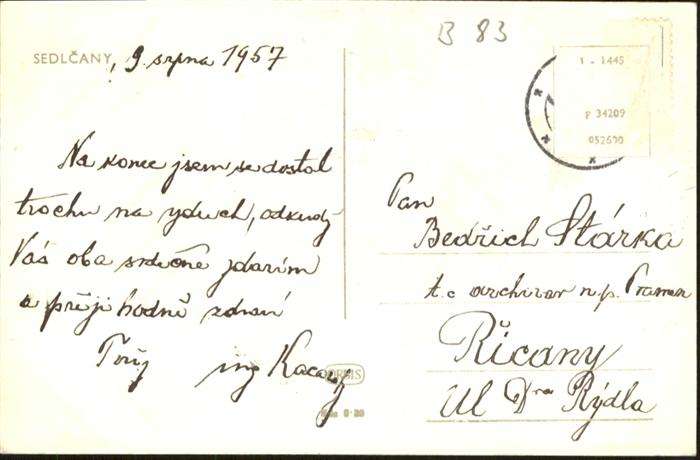 B 83
SEDLČANY, 9. srpna 1957
1 - 1445
P 34209
052600
Na konec jsem se dostal
trochu na vzduch, odkudž
Vás oba srdečně zdravím
a přeji hodně zdraví
Tvůj ing
ORBIS
Kčs 0·30
Pan
Bedřich Stárka
t. č. archivář n. p. Pramen
Říčany
Ul Dra Rýdla